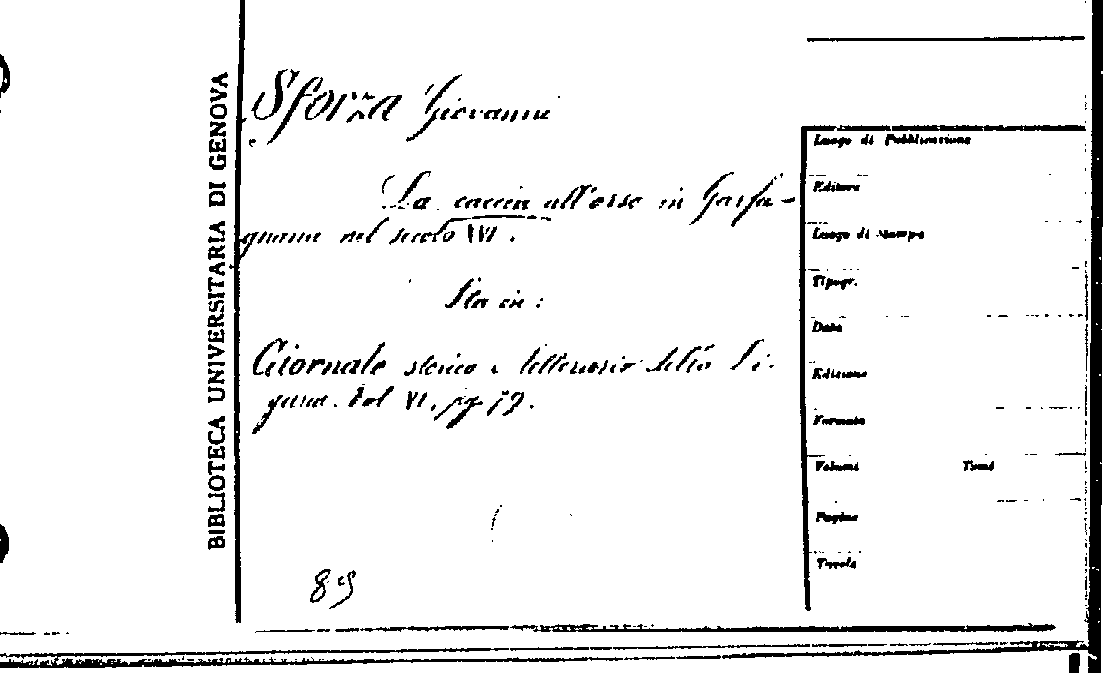 BIBLIOTECA UNIVERSITARIA DI GENOVA
Sforza Giovanni
La caccia all'orso in Garfa-
gnana nel secolo XVI.
Sta in:
Giornale storico e letterario della Li-
guria. Vol VI. pg 79.
89
Luogo di Pubblicazione
Editore
Luogo di Stampa
Tipogr.
Data
Edizione
Formato
Volumi Tomi
Pagine
Tavole